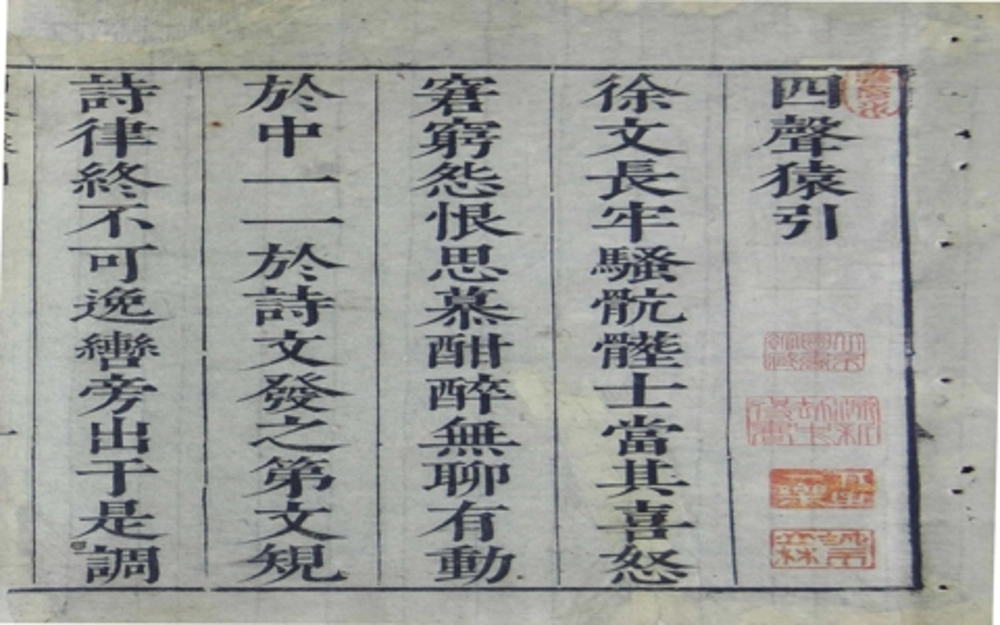 四聲猿引
徐文長牢騷骯髒士當其喜怒
窘窮怨恨思慕酣醉無聊有動
於中一一於詩文發之第文規
詩律終不可逸轡旁出于是調